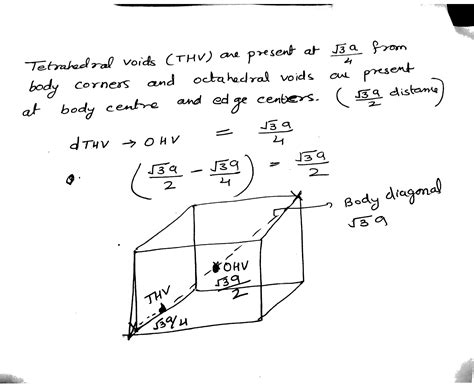 Tetrahedral voids (THV) are present at √3a/4 from
body corners and octahedral voids are present
at body centre and edge centers. (√3a/2 distance)
dTHV → OHV = √3a/4
(√3a/2 - √3a/4) = √3a/2
Body diagonal
√3a
OHV
√3a/2
THV
√3a/4